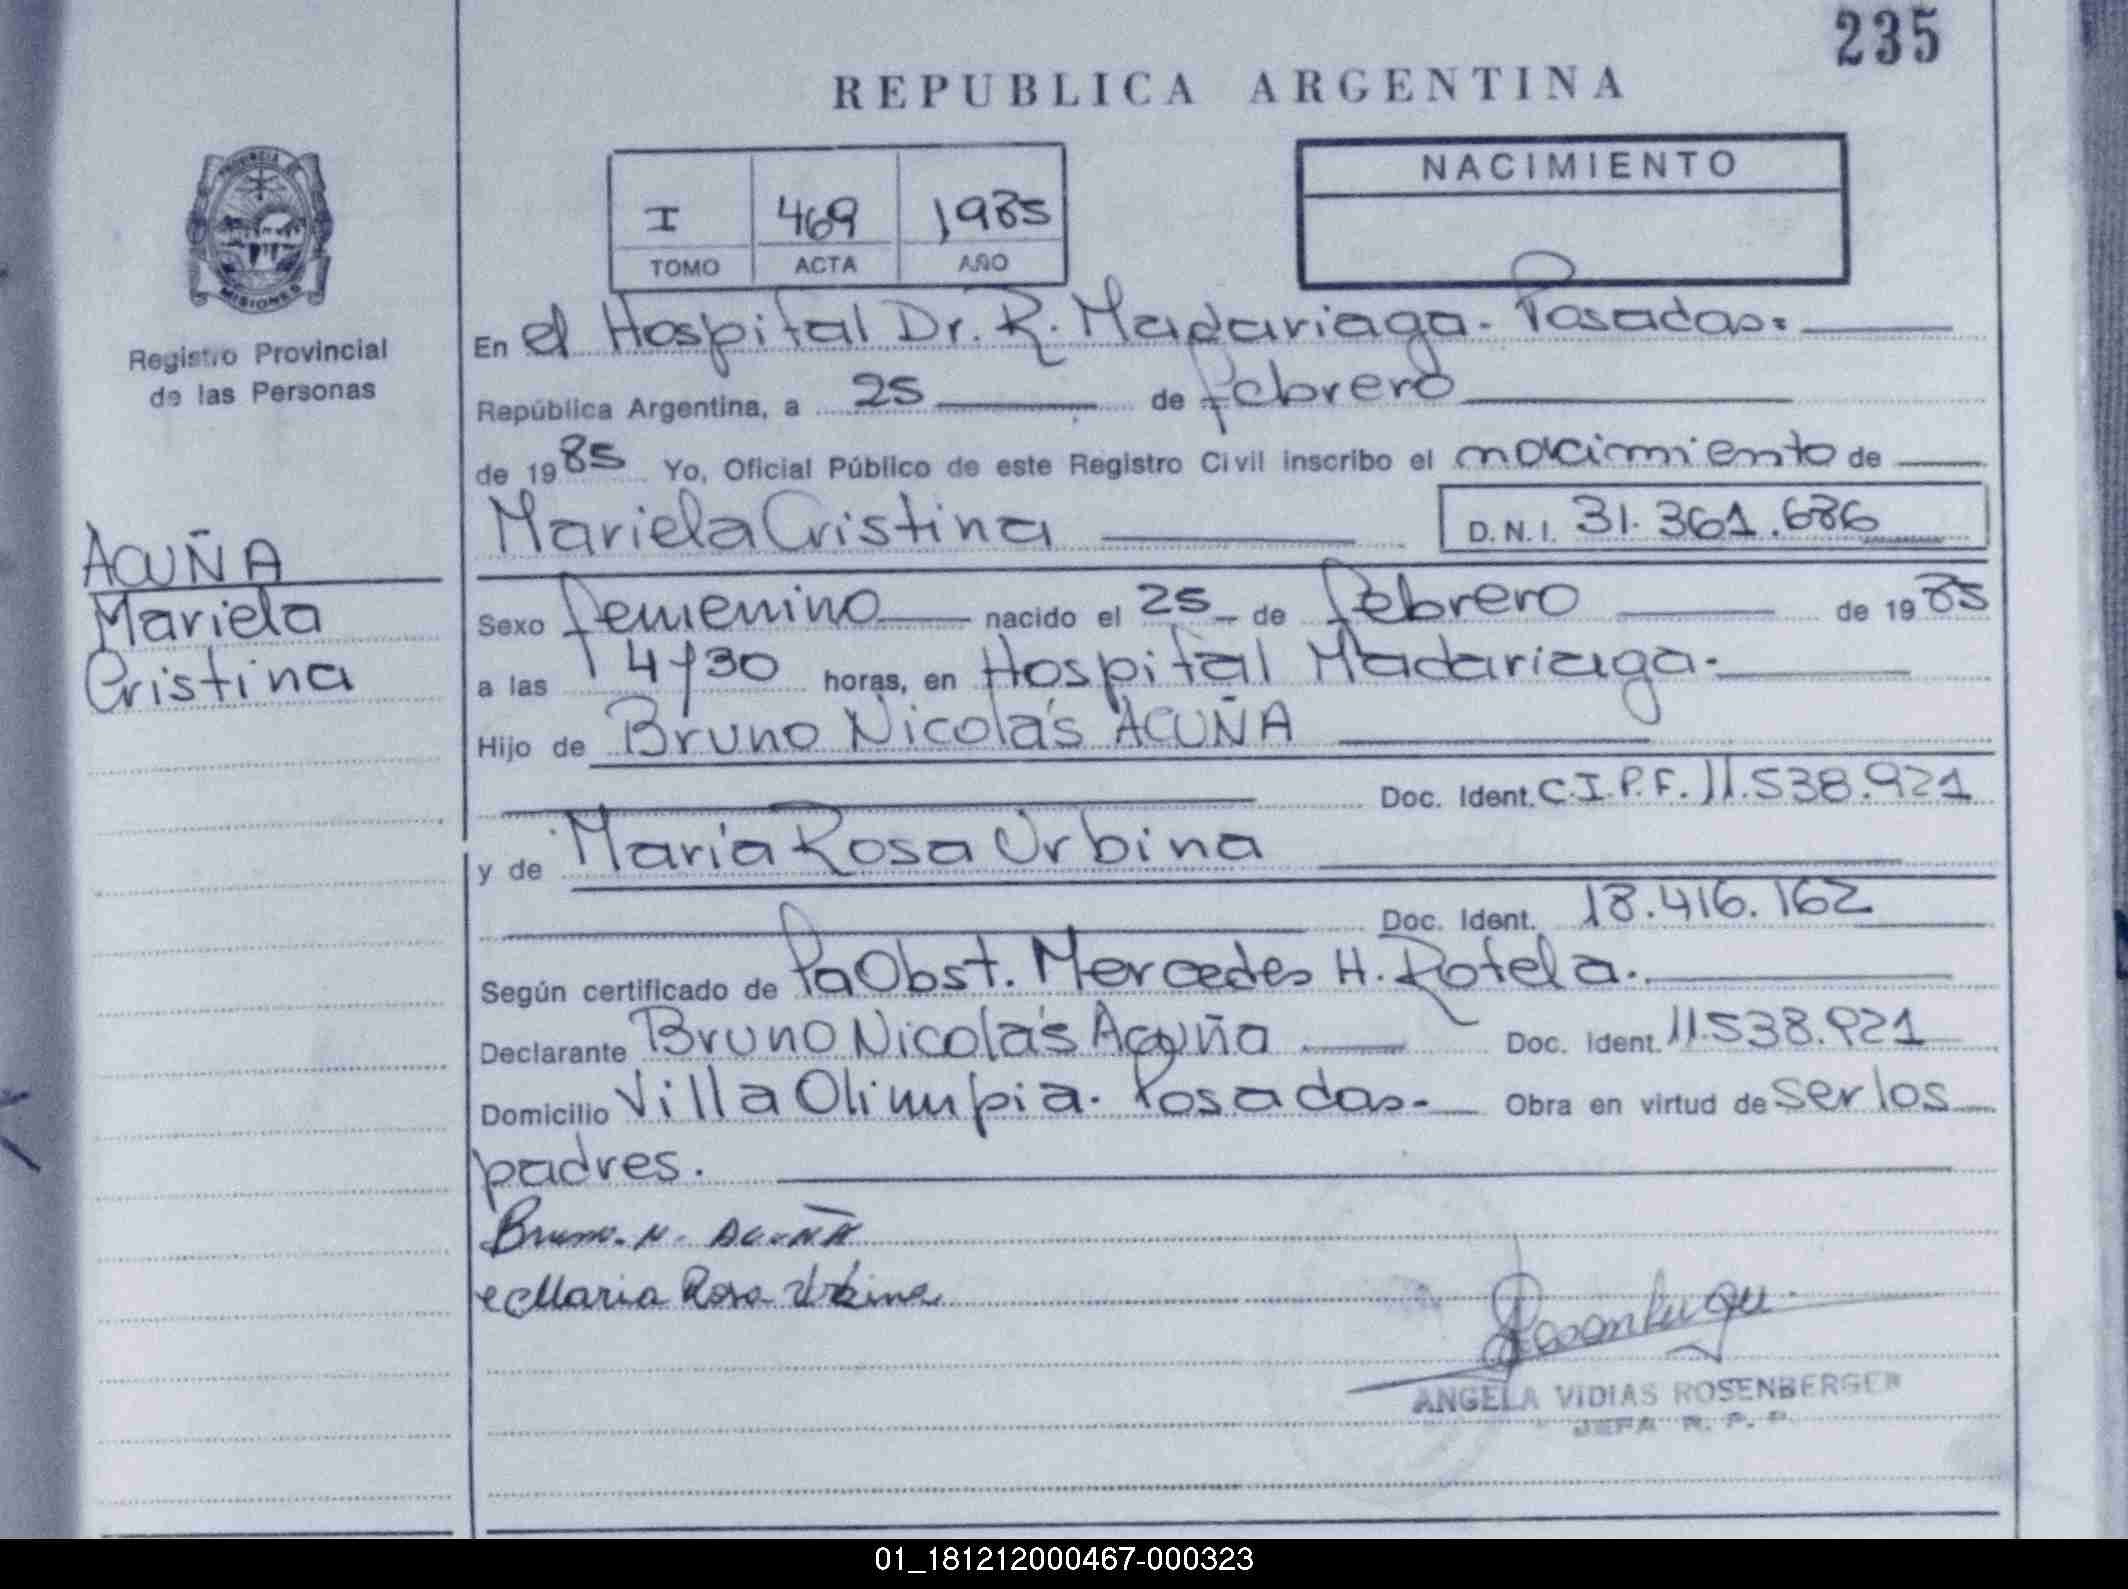 235
REPUBLICA ARGENTINA
PROVINCIA
MISIONES
Registro Provincial
de las Personas
I 469 1985
TOMO ACTA AÑO
NACIMIENTO
En el Hospital Dr. R. Madariaga. Posadas.
República Argentina, a 25 de febrero
de 1985 Yo, Oficial Público de este Registro Civil inscribo el nacimiento de
Mariela Cristina D.N.I. 31.361.686
ACUÑA
Mariela
Cristina
Sexo femenino nacido el 25 de febrero de 1985
a las 14/30 horas, en Hospital Madariaga.
Hijo de Bruno Nicolás ACUÑA
Doc. Ident. C.I.P.F. 11.538.921
y de María Rosa Urbina
Doc. Ident. 18.416.162
Según certificado de PaObst. Mercedes H. Rotela.
Declarante Bruno Nicolás Acuña Doc. Ident. 11.538.921
Domicilio Villa Olimpia. Posadas. Obra en virtud de ser los
padres.
Bruno. N. ACUÑA
Maria Rosa Urbina
Rosenberger
ANGELA VIDIAS ROSENBERGER
JEFA R. P. P.
01_181212000467-000323